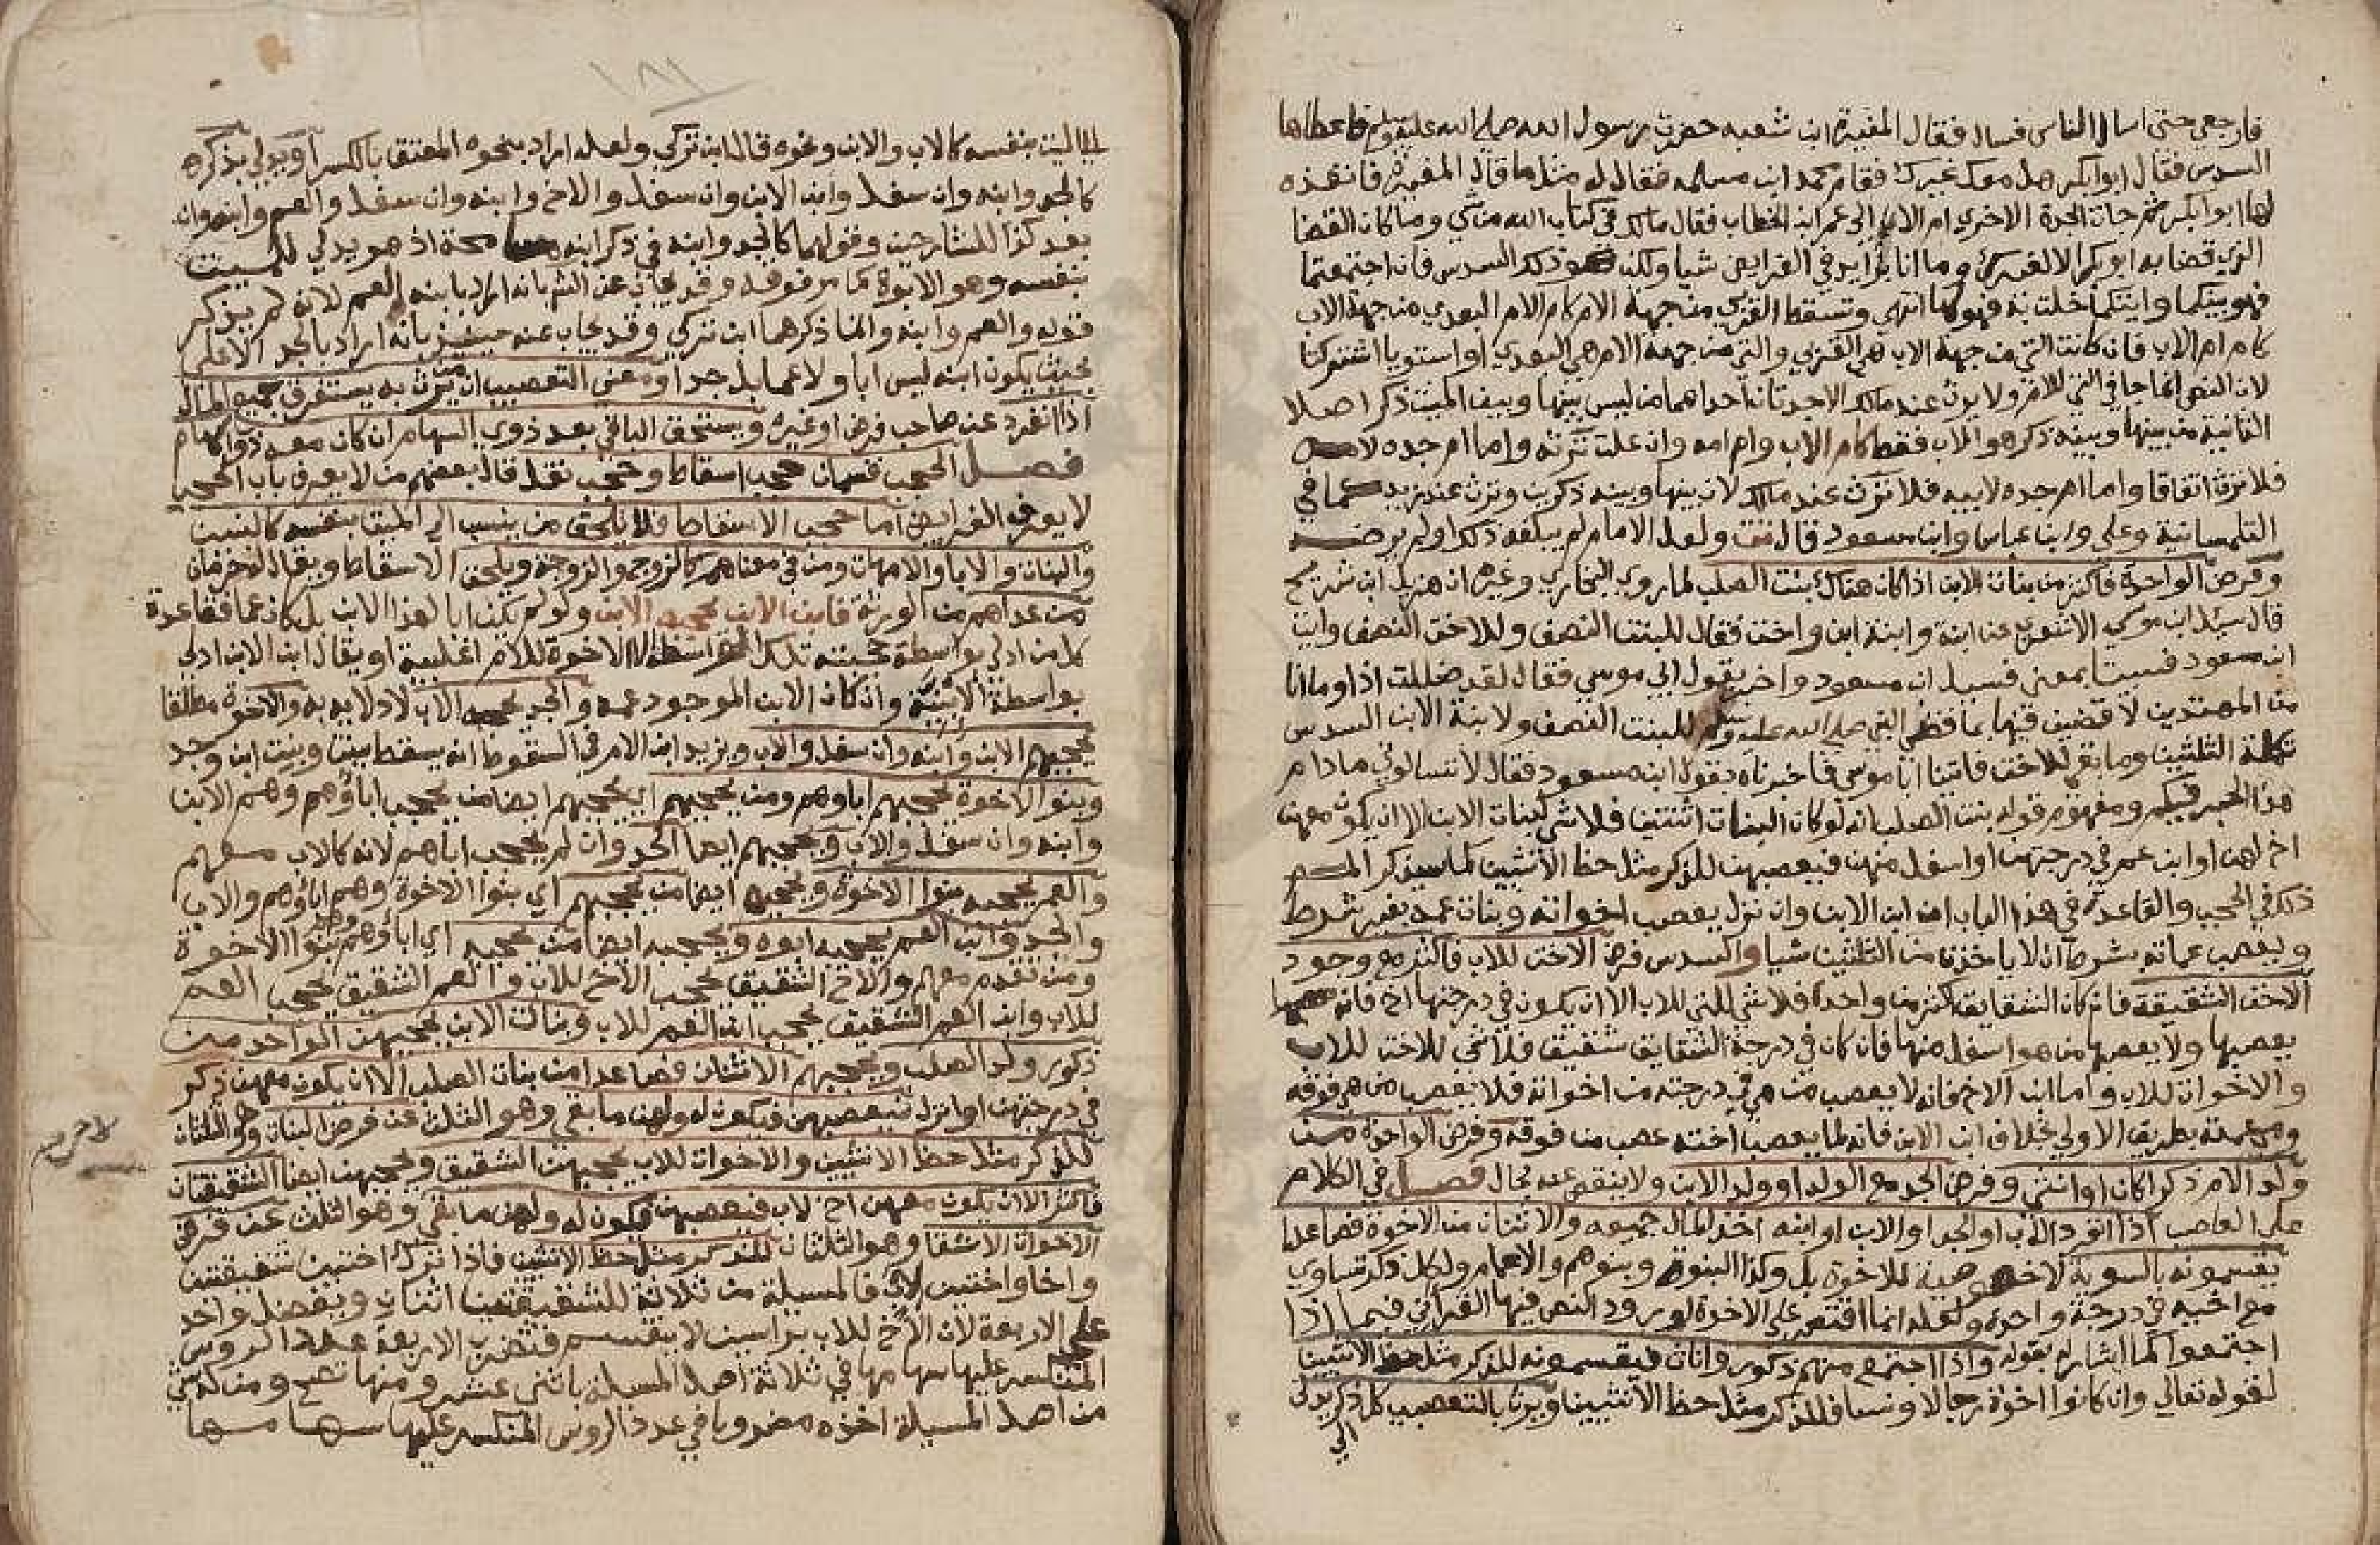 فارجعي حتى اسال الناس فسال فقال المغيرة ابن شعبه حضرت رسول الله صلى الله عليه وسلم فاعطاها
السدس فقال ابوابكر هل معك غيرك فقام محمد ابن مسلمه فقال له مثل ما قال المغيرة فانفذه
لها ابوابكر ثم جات الجدة الاخري ام الاب الي عمر ابن الخطاب فقال مالك في كتاب الله من شي وما كان القضا
الذي قضا به ابوبكر الا لغيرك وما انا بزايد في الفرايض شيا ولكن هو ذلك السدس فان اجتمعتما
فهو بينكما وايتكما خلت به فهو لها انتهى وتسقط القربي من جهة الام كام الام البعدي من جهة الاب
كام ام الاب فان كانت التي من جهة الاب هي القربي والتي من جهة الام هي البعدي او استويا اشتركتا
لان النص انما جا في التي للام ولا يرث عند مالك الاجدتان احداهما من ليس بينها وبين الميت ذكر اصلا
الثانية من بينها وبينه ذكر هو الاب فقط كام الاب وام امه وان علت ترثه واما ام جده لامه
فلا ترث اتفاقا واما ام جده لابيه فلا ترث عند مالك لان بينها وبينه ذكرين وترث عند زيد كما في
التلمسانية وعلي وابن عباس وابن مسعود قال تت ولعل الامام لم يبلغه ذلك اولم يرضه
وفرض الواحدة فاكثر من بنات الابن اذا كان هناك بنت الصلب لما روي البخاري وغيره ان هزيل ابن شرحبيل
قال سيل ابن موسي الاشعري عن ابنة وابنة ابن واخت فقال للبنت النصف وللاخت النصف وايت
ابن مسعود فسيتابعني فسيل ابن مسعود واخبر بقول ابي موسي فقال لقد ضللت اذا وما انا
من المهتدين لاقضين فيها بما قضي النبي صلى الله عليه وسلم للبنت النصف ولابنة الابن السدس
تكملة الثلثين وما بقي للاخت فاتينا ابا موسي فاخبرناه بقول ابن مسعود فقال لا تسالوني ما دام
هذا الحبر فيكم ومفهوم قوله بنت الصلب انه لو كان البنات اثنتين فلا شي لبنات الابن الا ان يكون معهن
اخ لهن او ابن عم في درجتهن او اسفل منهن فيعصبهن للذكر مثل حظ الانثيين كما سيذكر المص
ذلك في الحجب والقاعدة في هذا الباب ان ابن الابن وان نزل يعصب اخواته وبنات عمه بغير شرط
ويعصب عماته بشرط ان لا ياخذن من الثلثين شيا والسدس فرض الاخت للاب فاكثر مع وجود
الاخت الشقيقة فان كان الشقايق اكثر من واحدة فلا شي للتي للاب الا ان يكون في درجتها اخ فانه
يعصبها ولا يعصبها من هو اسفل منها فان كان في درجة الشقايق شقيق فلا شي للاخت للاب
والاخوان للاب واما ابن الاخ فانه لا يعصب من هي في درجته من اخواته فلا يعصب من هي فوقه
ومن عمته بطريق الاولي بخلاف ابن الابن فانه لما يعصب اخته عصب من فوقه وفرض الواحدة من
ولد الام ذكرا كان او انثى وفرض الجد مع الولد او ولد الابن ولا ينقص عنه بحال فصل في الكلام
على العاصب اذا انفرد الاب او الجد او الابن او ابنه اخذ المال جميعه والاثنان من الاخوة فصاعدا
يقسمونه بالسوية لا خصوصية للاخوة بل وكذا البنوة وبنوهم والاعمام ولكل ذكر تساوي
مع اخيه في درجة واحدة ولعله انما اقتصر على الاخوة لورود النص فيها القراني فيما اذا
اجتمعوا كما اشار له بقوله واذا اجتمع منهم ذكور واناث فيقسمونه للذكر مثل حظ الانثيين
لقوله تعالي وان كانوا اخوة رجالا ونسا فللذكر مثل حظ الانثيين ويرث بالتعصيب كل ذكر يدلي
الي
١٨٦
للميت بنفسه كالاب والابن ونحوه قال ابن تركي ولعله اراد بنحوه المعتق بالكسر او يدلي بذكره
كالجد وابنه وان سفل وابن الابن وان سفل والاخ وابنه وان سفل والعم وابنه وان
بعد كذا للشارحين وقولهما كالجد وابنه في ذكر ابنه صحة اذ هو يدلي للميت
بنفسه وهو الابوة كما مر فوقه وقد يجاب عن التت بانه اراد بابنه العم لانه لم يذكر
قوله والعم وابنه وانما ذكرهما ابن تركي وقد يجاب عنه حينئذ بانه اراد بالجد الاعلى
بحيث يكون ابنه ليس ابا ولا عما بل جدا ومعني التعصيب ان من يرث به يستغرق جميع المال
اذا انفرد عن صاحب فرض او غيره ويستحق الباقي بعد ذوي السهام ان كان معه ذوا سهام
فصل الحجب قسمان حجب اسقاط وحجب نقل قال بعضهم من لا يعرف باب الحجب
لا يعرف الفرايض اما حجب الاسقاط فلا يلحق من ينسب الي الميت بنفسه كالبنين
والبنات والابا والامهات ومن في معناهم كالزوج والزوجة ويلحق الاسقاط ويقال له حرمان
من عداهم من الورثة فابن الابن يحجبه الابن ولو لم يكن ابا لهذا الابن بل كان عما فقاعدة
كل من ادلي بواسطة حجبته تلك الواسطة الا الاخوة للام اغلبية او يقال ابن الابن ادلي
بواسطة الابنية واذ كان الابن الموجود عمه والجد يحجبه الاب لادلايه به والاخوة مطلقا
يحجبهم الابن وابنه وان سفل والاب ويزيد ابن الام في السقوط انه يسقط ببنت وبنت ابن وجد
وبنوا الاخوة يحجبهم اباوهم ومن يحجبهم اي يحجبهم ايضا من يحجب اباؤهم وهم الابن
وابنه وان سفل والاب ويحجبهم ايضا الجد وان لم يحجب اباهم لانه كالاب معهم
والعم يحجبه بنوا الاخوة ويحجبه ايضا من يحجبهم اي بنوا الاخوة وهم اباؤهم والاب
والجد وابن العم يحجبه ابوه ويحجبه ايضا من يحجبه اي اباؤهم وهم بنوا الاخوة
ومن تقدم معهم والاخ الشقيق يحجب الاخ للاب والعم الشقيق يحجب العم
للاب وابن العم الشقيق يحجب ابن العم للاب وبنات الابن يحجبهن الواحد من
ذكور ولد الصلب ويحجبهم الاثنتان فصاعدا من بنات الصلب الا ان يكون معهن ذكر
في درجتهن او انزل فيعصبهن فيكون له ولهن ما بقي وهو الثلث عن فرض البنات وهو الثلثان
للذكر مثل حظ الانثيين والاخوات للاب يحجبهن الشقيق ويحجبهن ايضا الشقيقتان
فاكثر الا ان يكون معهن اخ لاب فيعصبهن فيكون له ولهن ما بقي وهو الثلث عن فرض
الاخوات الاشقا وهو الثلثان للذكر مثل حظ الانثيين فاذا ترك اختين شقيقتين
واخا واختين لاب فالمسيلة من ثلاثة للشقيقتين اثنان ويفضل واحد
على الاربعة لان الاخ للاب براسين لا ينقسم فتضرب الاربعة عدد الروس
المنكسر عليها سهامها في ثلاثة اصل المسيلة باثني عشر ومنها تصح ومن له شي
من اصل المسيلة اخذه مضروبا في عدد الروس المنكسر عليها سهامها